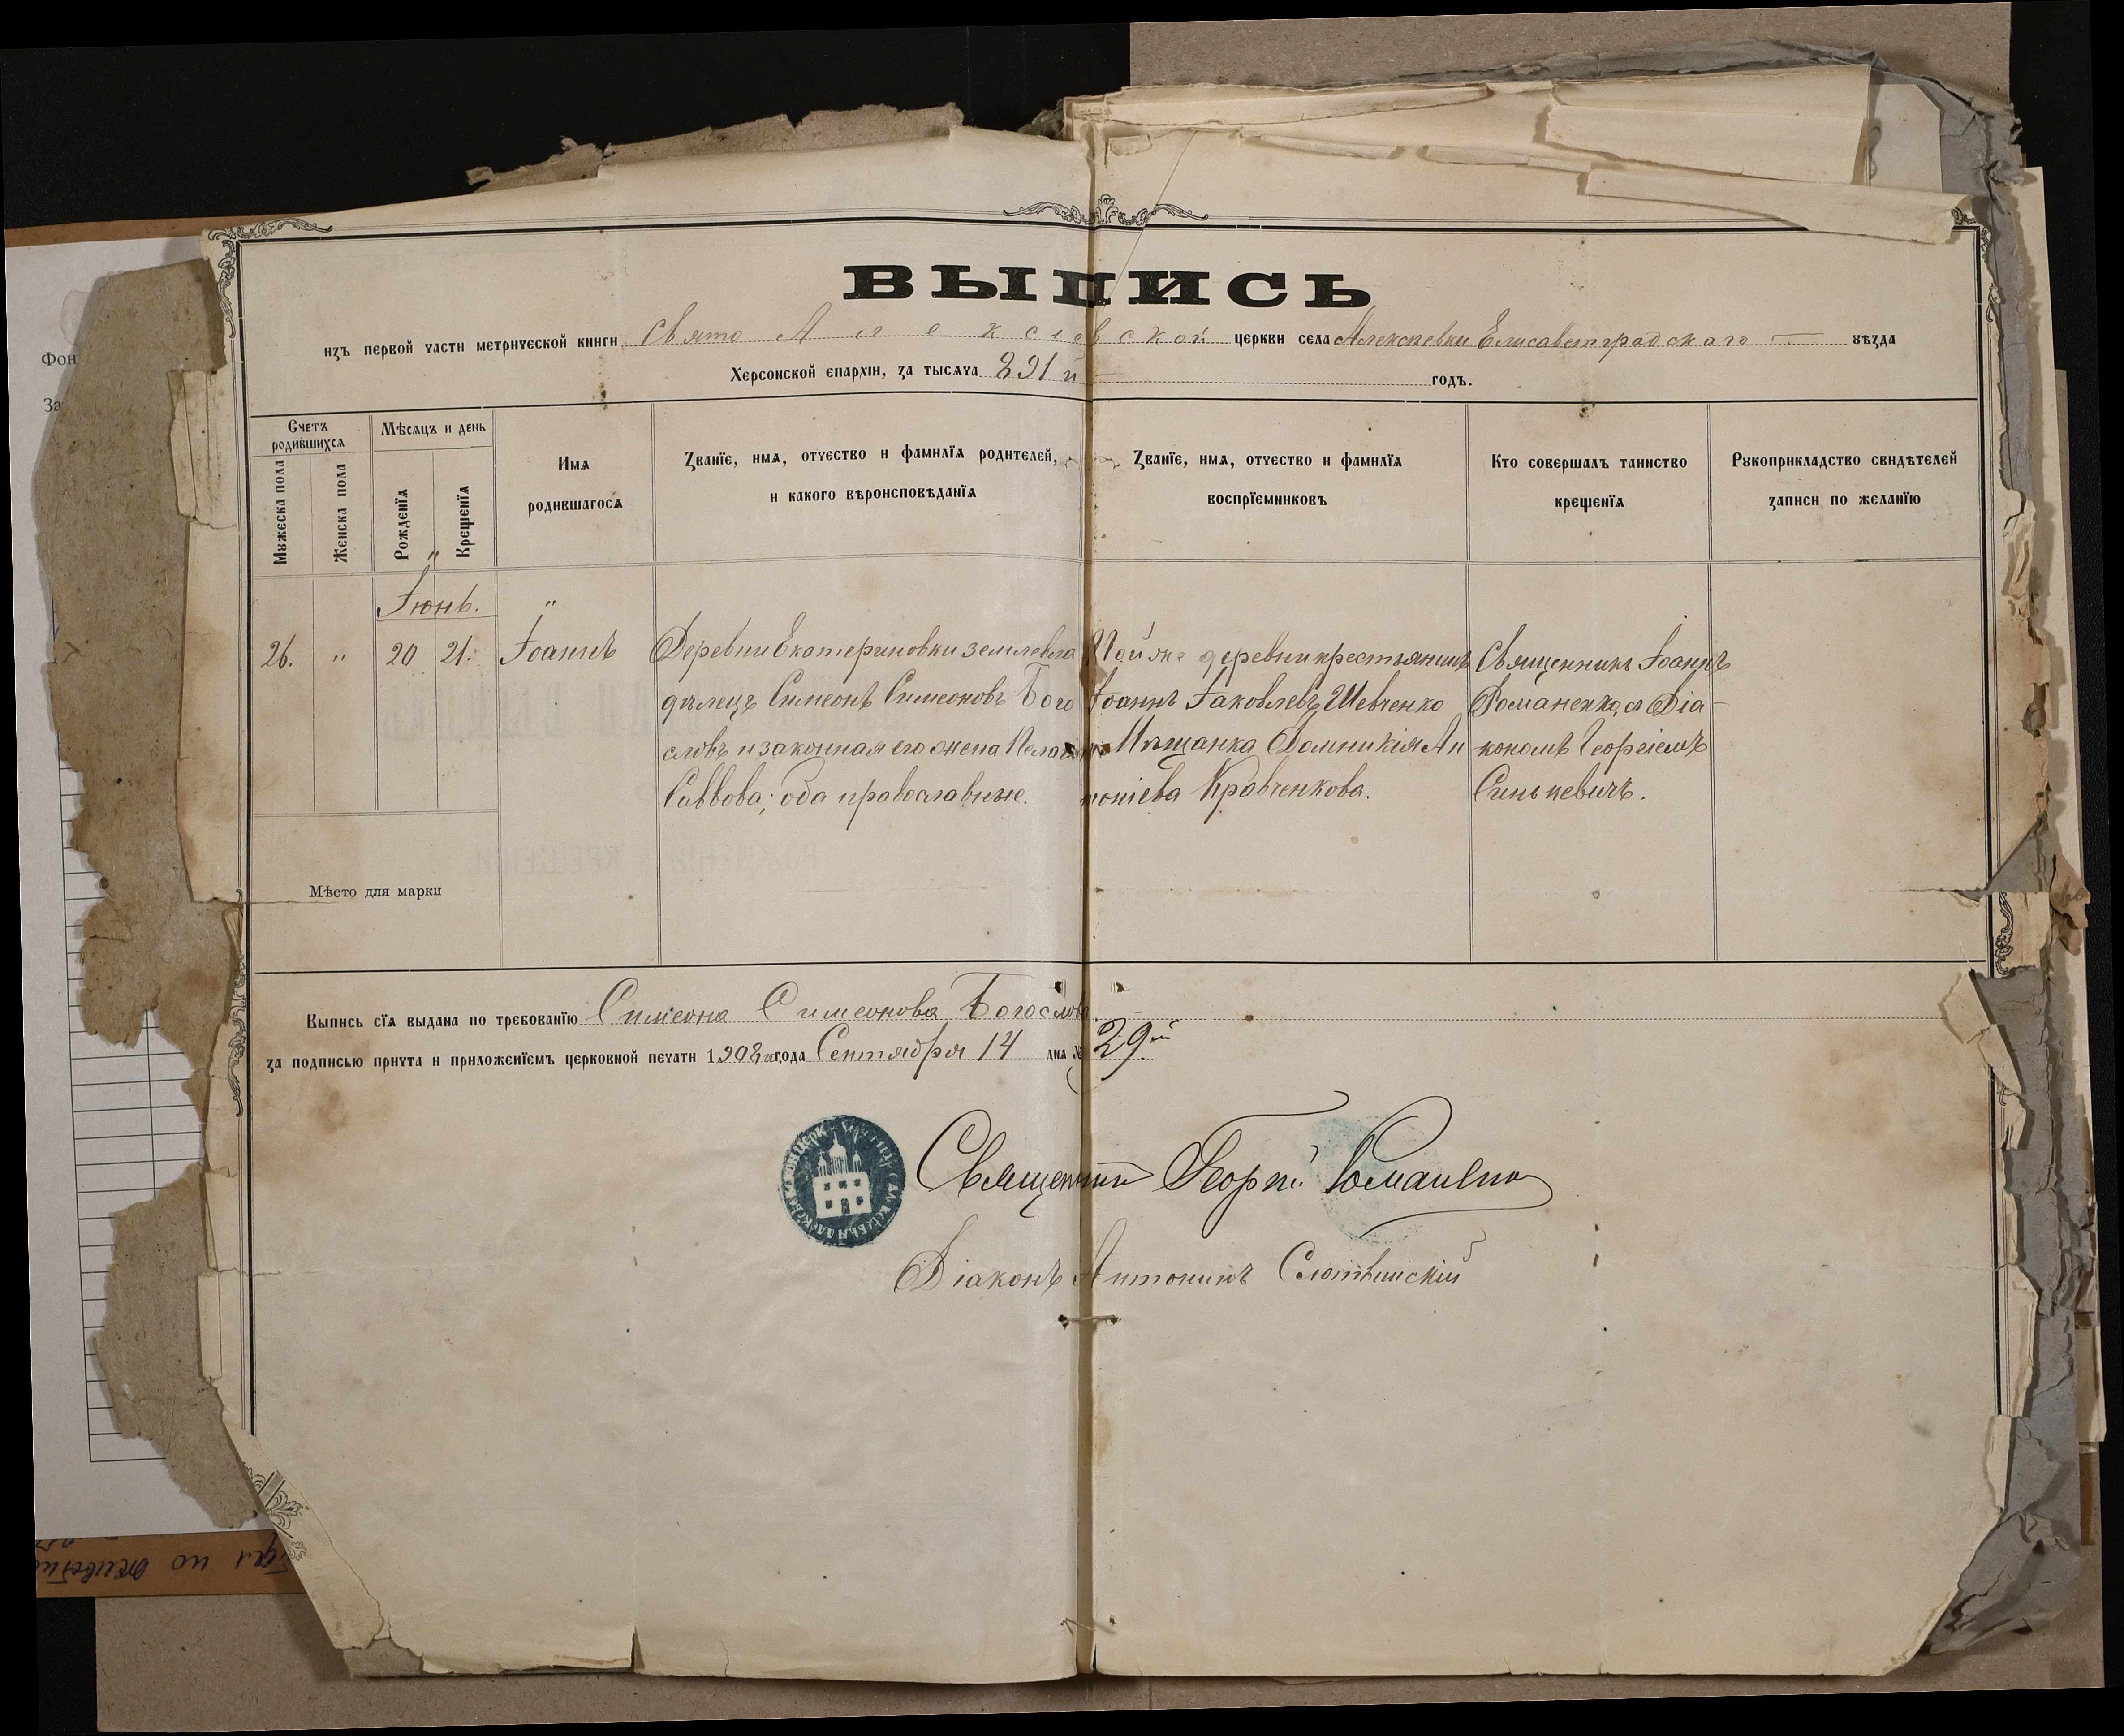 Фон
За
ВЫПИСЬ
изъ первой части метрической книги Свято Алексѣевской церкви села Алексѣевки Елисаветградскаго — уѣзда
Херсонской епархіи, за тысяча 891 й годъ.
Счетъ родившихся
Мужеска пола
Женска пола
Мѣсяцъ и день
Рожденїя
Крещенїя
Имя родившагося
Званїе, имя, отчество и фамилїя родителей,
и какого вѣроисповѣданїя
Званїе, имя, отчество и фамилїя
воспрїемниковъ
Кто совершалъ таинство
крещенїя
Рукоприкладство свидѣтелей
записи по желанїю
Іюнь.
26. " 20 21. Іоаннъ
Деревни Екатериновки землевла
дѣлецъ Симеонъ Симеоновъ Бого
словъ и законная его жена Пелагія
Саввова; оба православные.
Той же деревни крестьянинъ
Іоаннъ Іаковлевъ Шевченко
и Мѣщанка Домникія Ан
тоніева Кравченкова.
Священникъ Іоаннъ
Романенко, съ Діа-
кономъ Георгіемъ
Синькевичъ.
Мѣсто для марки
Выпись сїя выдана по требованїю Симеона Симеонова Богослова.
за подписью причта и приложенїемъ церковной печати 1908 года Сентября 14 дня № 29й
Священникъ Георгій Романенко
Діаконъ Антонинъ